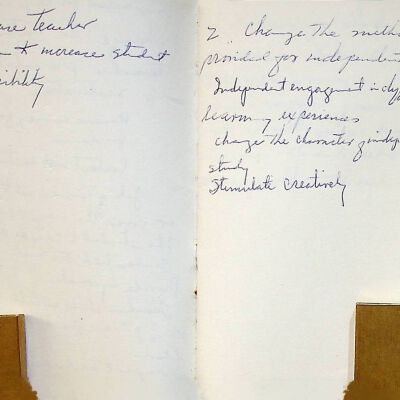 Teacher
* increase student
sibility
2. Change The metho
provided for independent
Independent engagement in
learning experiences
change The character of indep
study
Stimulate creatively